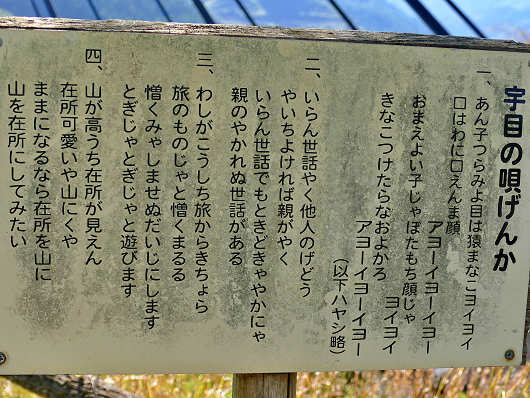 宇目の唄げんか
一、あん子つらみよ目は猿まなこヨイヨイ
口はわに口えんま顔
アヨーイヨーイヨー
おまえよい子じゃぼたもち顔じゃ
ヨイヨイ
きなこつけたらなおよかろ
アヨーイヨーイヨー
（以下ハヤシ略）
二、いらん世話やく他人のげどう
やいちよければ親がやく
いらん世話でもときどきゃやかにゃ
親のやかれぬ世話がある
三、わしがこうしち旅からきちょら
旅のものじゃと憎くまるる
憎くみゃしませぬだいじにします
とぎじゃとぎじゃと遊びます
四、山が高うち在所が見えん
在所可愛いや山にくや
ままになるなら在所を山に
山を在所にしてみたい